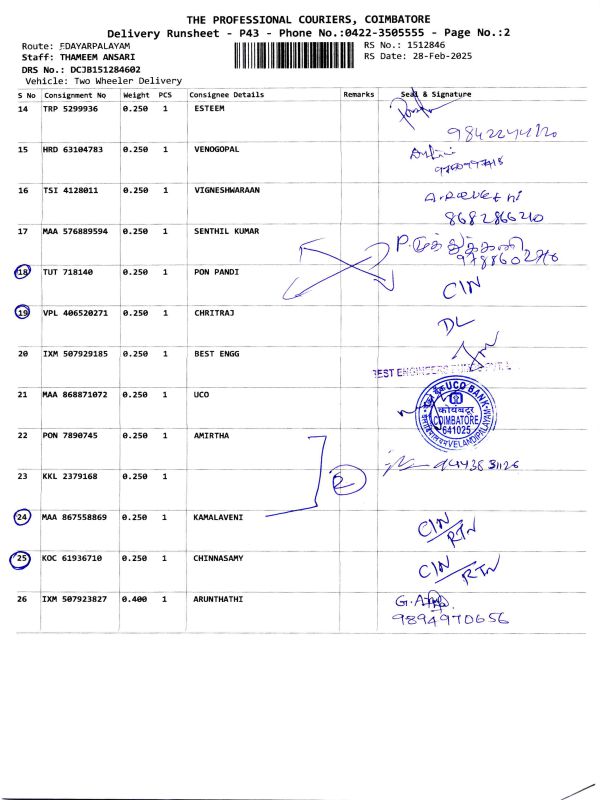 THE PROFESSIONAL COURIERS, COIMBATORE
Delivery Runsheet - P43 - Phone No.:0422-3505555 - Page No.:2
Route: EDAYARPALAYAM RS No.: 1512846
Staff: THAMEEM ANSARI RS Date: 28-Feb-2025
DRS No.: DCJB151284602
Vehicle: Two Wheeler Delivery
S No Consignment No Weight PCS Consignee Details Remarks Seal & Signature
14 TRP 5299936 0.250 1 ESTEEM
15 HRD 63104783 0.250 1 VENOGOPAL
16 TSI 4128011 0.250 1 VIGNESHWARAAN
8682866210
17 MAA 576889594 0.250 1 SENTHIL KUMAR
18 TUT 718140 0.250 1 PON PANDI CIN
19 VPL 406520271 0.250 1 CHRITRAJ DL
20 IXM 507929185 0.250 1 BEST ENGG
21 MAA 868871072 0.250 1 UCO
UCO BANK
कोयंबटूर
COIMBATORE
641025
VELANDIPALAYAM
22 PON 7890745 0.250 1 AMIRTHA
23 KKL 2379168 0.250 1 2
24 MAA 867558869 0.250 1 KAMALAVENI CIN/RTN
25 KOC 61936710 0.250 1 CHINNASAMY CIN/RTN
26 IXM 507923827 0.400 1 ARUNTHATHI
9894970656